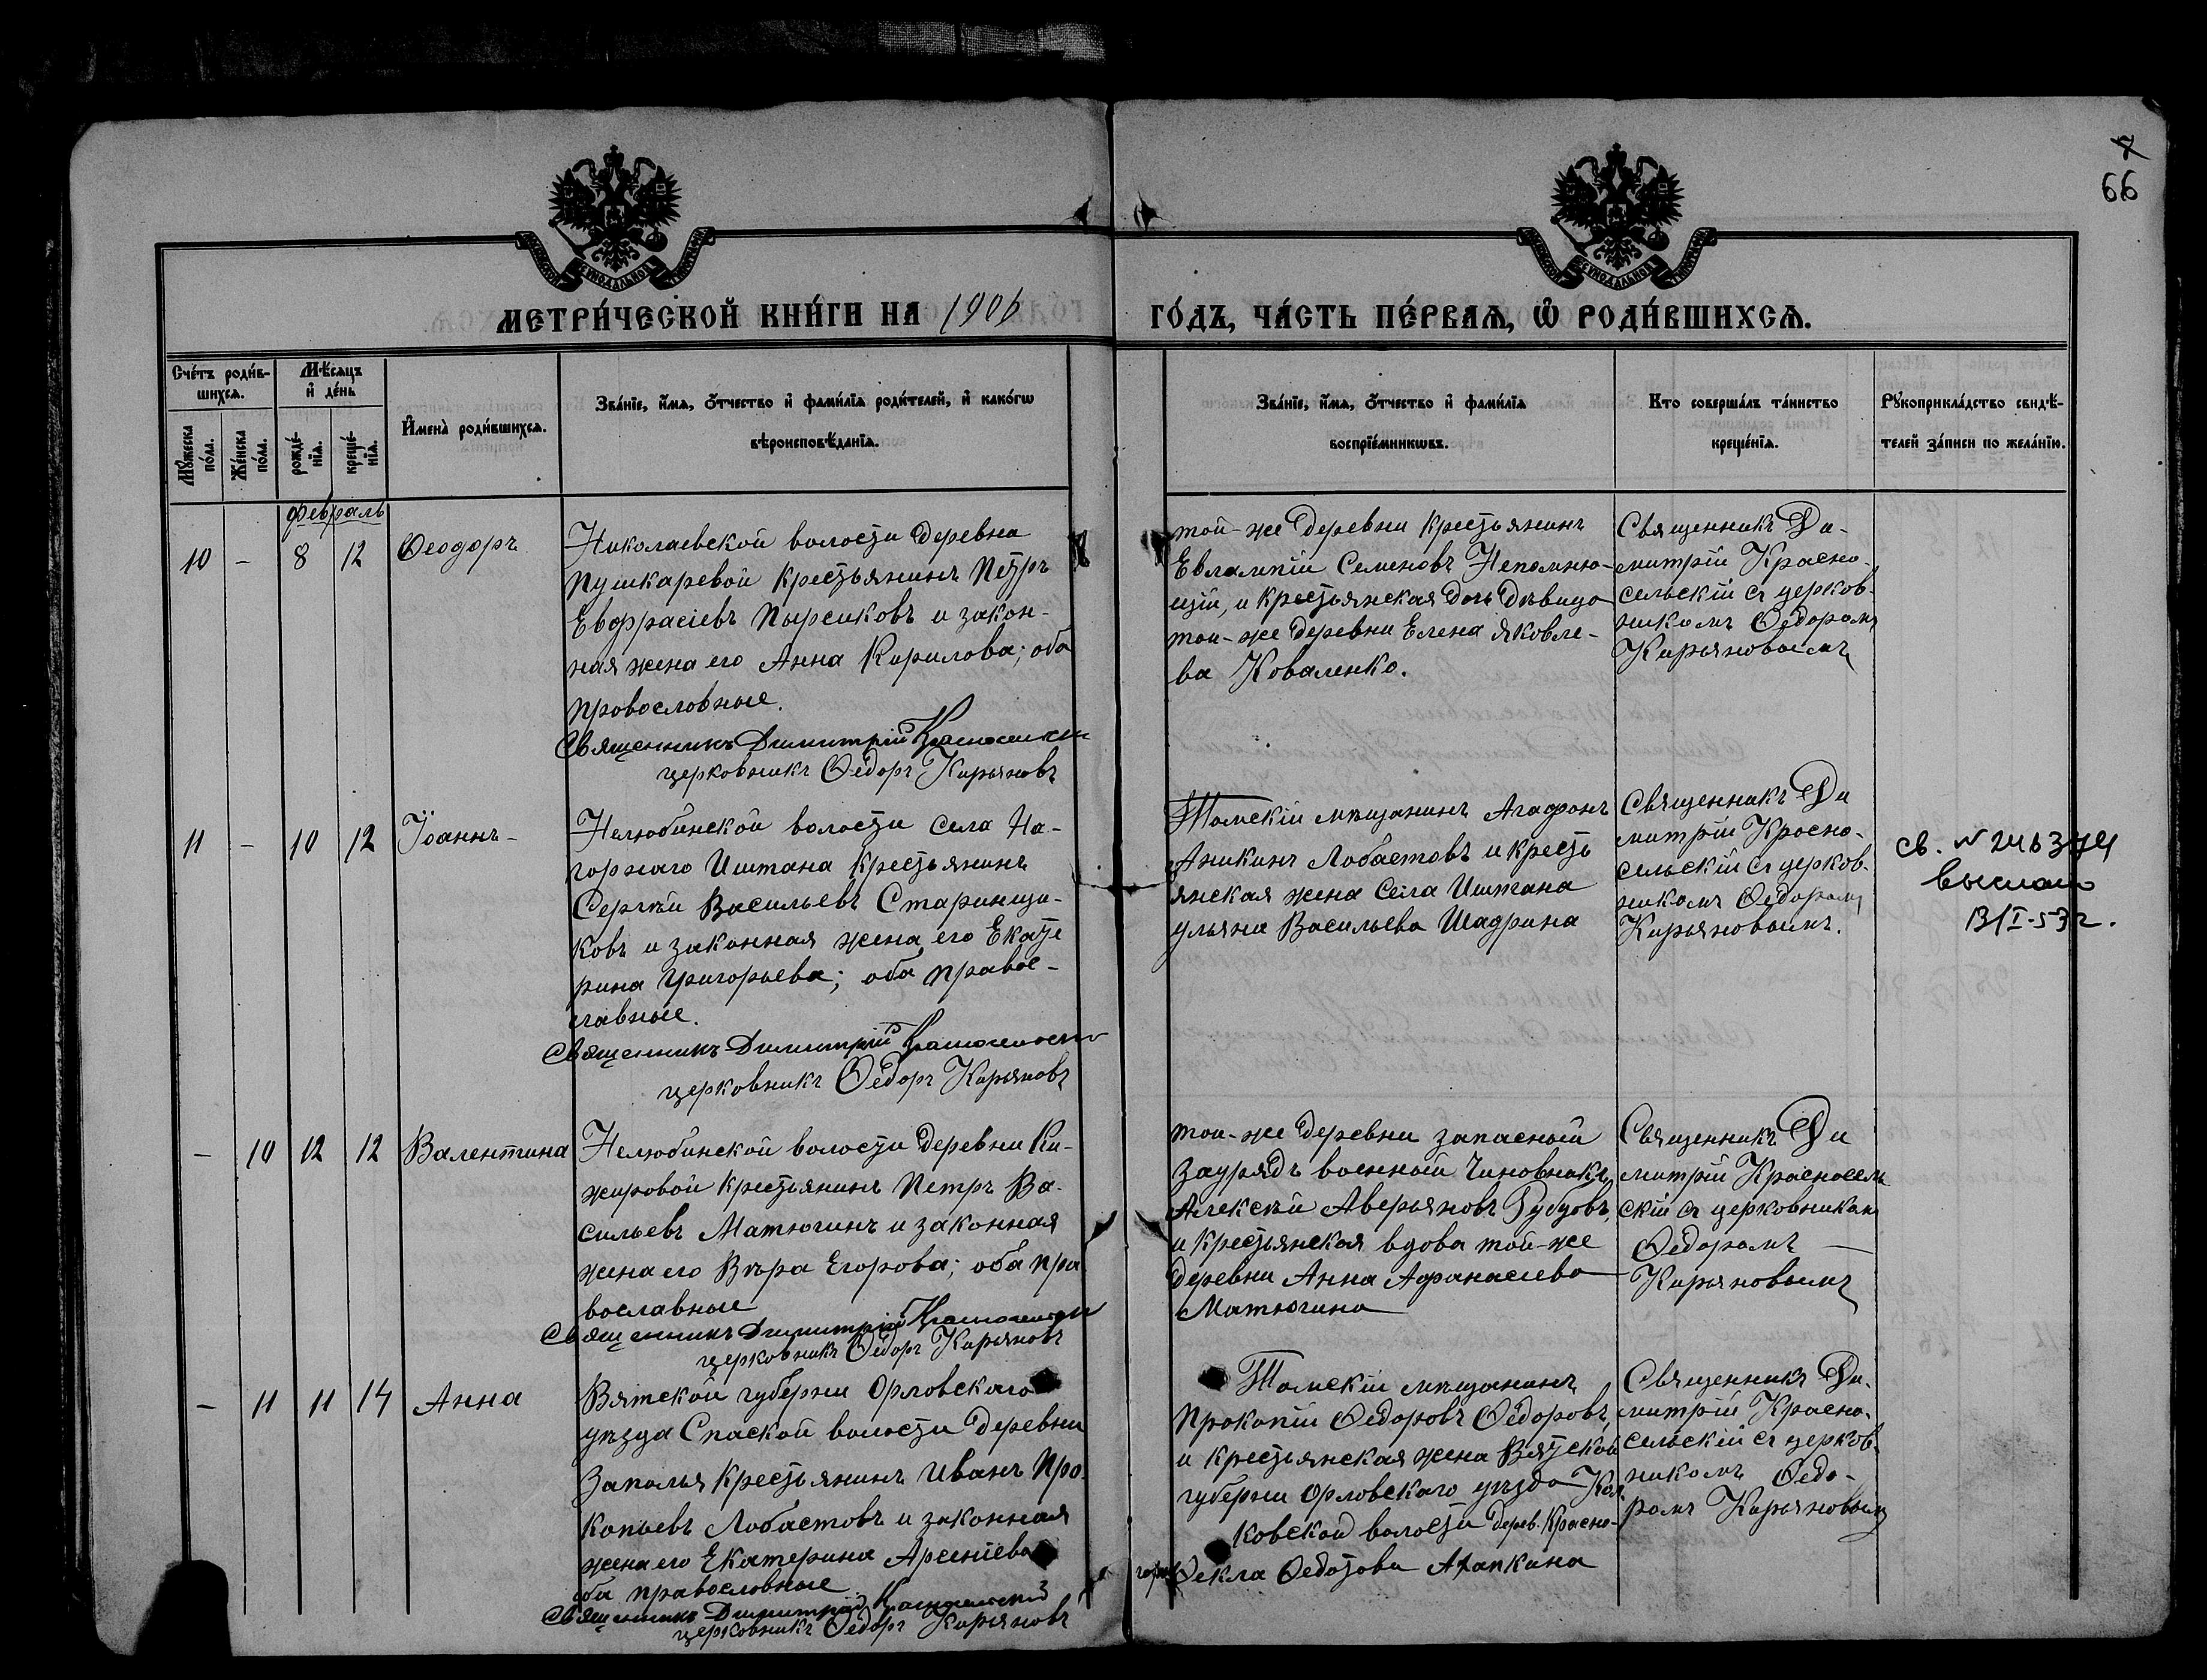 7
66
СѴНОДАЛЬНОЙ
СѴНОДАЛЬНОЙ
МЕТРИ́ЧЕСКОЙ КНИ́ГИ НА 1906
ГО́ДЪ, ЧА́СТЬ ПЕ́РВАѦ, Ѡ҆ РОДИ́ВШИХСѦ.
Сче́тъ роди́в-
шихсѧ.
Мꙋ́жеска
по́ла.
Же́нска
по́ла.
Мѣ́сѧцъ
и҆ де́нь
рожде́-
нїѧ.
креще́-
нїѧ.
И҆мена̀ роди́вшихсѧ.
Зва́нїе, и҆́мѧ, ѻ҆́тчество и҆ фами́лїѧ роди́телей, и҆ како́гѡ
вѣроисповѣ́данїѧ.
Зва́нїе, и҆́мѧ, ѻ҆́тчество и҆ фами́лїѧ
воспрїе́мникѡвъ.
Кто̀ соверша́лъ та́инство
креще́нїѧ.
Рꙋкоприкла́дство свидѣ́-
телей за́писи по жела́нїю.
Февраль
10 - 8 12 Ѳеодоръ
Николаевской волости деревни
Пушкаревой крестьянинъ Петръ
Евфрасіевъ Пырсиковъ и закон-
ная жена его Анна Кирилова; оба
православные.
Священникъ Димитрій Красносельскій
церковникъ Ѳедоръ Кирьяновъ
той-же деревни крестьянинъ
Евлампій Семеновъ Непомню-
щій, и крестьянская дочь девица
той-же деревни Елена Яковле-
ва Коваленко.
Священникъ Ди-
митрій Красно-
сельскій съ церков-
никомъ Ѳедоромъ
Кирьяновымъ
11 - 10 12 Іоаннъ-
Нелюбинской волости села На-
горнаго Иштана крестьянинъ
Сергѣй Васильевъ Старинщи-
ковъ и законная жена его Екате
рина Григорьева; оба правос-
лавные.
Священникъ Димитрій Красносельскій
церковникъ Ѳедоръ Кирьяновъ
Томскій мѣщанинъ Агафонъ
Аникинъ Лобастовъ и кресть
янская жена села Иштана
Ульяна Васильева Шадрина
Священникъ Ди
митрій Красно-
сельскій съ церков-
никомъ Ѳедоромъ
Кирьяновымъ.
св. №
выслано
13/I-53г.
- 10 12 12 Валентина
Нелюбинской волости деревни Ки-
жировой крестьянинъ Петръ Ва-
сильевъ Матюгинъ и законная
жена его Вѣра Егорова; оба пра
вославные
Священникъ Димитрій Красносельскій
церковникъ Ѳедоръ Кирьяновъ
той-же деревни запасный
Заурядъ военный чиновникъ
Алексѣй Аверьяновъ Рубцовъ,
и крестьянская вдова той-же
деревни Анна Афанасіева
Матюгина
Священникъ Ди
митрій Красносель
скій съ церковникомъ
Ѳедоромъ -
Кирьяновымъ
- 11 11 14 Анна
Вятской губерни Орловскаго
уѣзда Спаской волости деревни
Заполья крестьянинъ Иванъ Про-
копьевъ Лобастовъ и законная
жена его Екатерина Арсеніева
оба православные
Священникъ Димитрій Красносельскій
церковникъ Ѳедоръ Кирьяновъ
Томскій мѣщанинъ
Прокопій Ѳедоровъ Ѳедоровъ,
и крестьянская жена Вятской
губерни Орловскаго уѣзда
ковской волости дерев. Красно-
Ѳекла Ѳедотова Агапкина
Священникъ Ди-
митрій Красно-
сельскій съ церков-
никомъ Ѳедо-
ромъ Кирьяновымъ